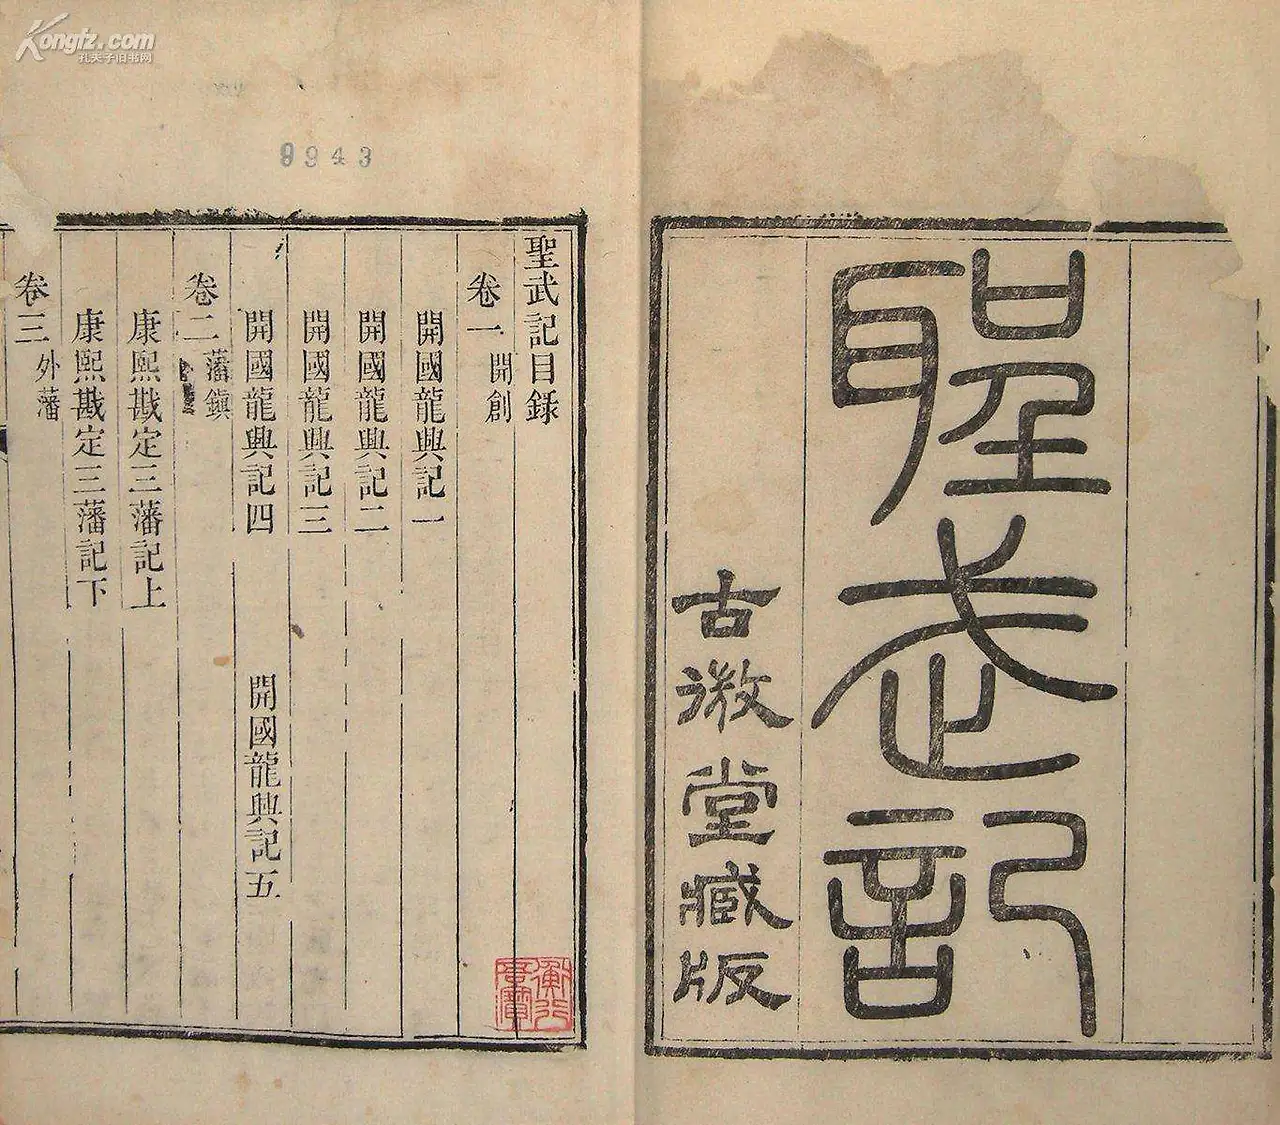 Kongfz.com
孔夫子旧书网
9943
聖武記
古微堂藏版
聖武記目錄
卷一 開創
開國龍興記一
開國龍興記二
開國龍興記三
開國龍興記四 開國龍興記五
卷二 藩鎮
康熙戡定三藩記上
康熙戡定三藩記下
卷三 外藩